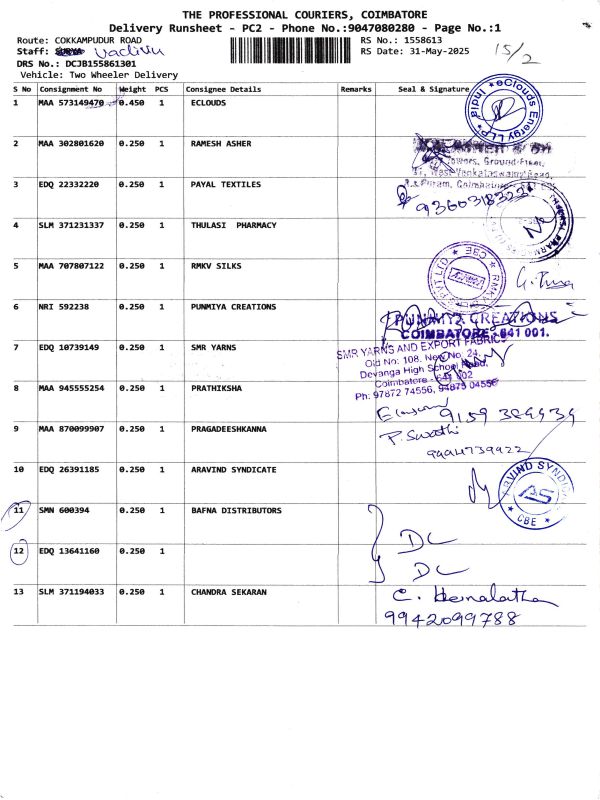 THE PROFESSIONAL COURIERS, COIMBATORE
Delivery Runsheet - PC2 - Phone No.:9047080280 - Page No.:1
Route: COKKAMPUDUR ROAD
RS No.: 1558613
Staff: SURYA Vadivu
RS Date: 31-May-2025
15/2
DRS No.: DCJB155861301
Vehicle: Two Wheeler Delivery
S No Consignment No Weight PCS Consignee Details Remarks Seal & Signature
1 MAA 573149470 0.450 1 ECLOUDS
eClouds Energy LLP * India
2 MAA 302801620 0.250 1 RAMESH ASHER
Towers, Ground Floor,
3 EDQ 22332220 0.250 1 PAYAL TEXTILES
4 SLM 371231337 0.250 1 THULASI PHARMACY
5 MAA 707807122 0.250 1 RMKV SILKS
RMKV PVT LTD * CBE
6 NRI 592238 0.250 1 PUNMIYA CREATIONS
PUNMIYA CREATIONS
COIMBATORE - 641 001.
7 EDQ 10739149 0.250 1 SMR YARNS
SMR YARNS AND EXPORT FABRICS
Old No: 108, New No. 24,
Devanga High School Road,
Coimbatore - 641 002
Ph: 97872 74556, 94875 04556
8 MAA 945555254 0.250 1 PRATHIKSHA
9 MAA 870099907 0.250 1 PRAGADEESHKANNA
P. Swathi
9994739922
10 EDQ 26391185 0.250 1 ARAVIND SYNDICATE
ARVIND SYNDICATE
AS
CBE
11 SMN 600394 0.250 1 BAFNA DISTRIBUTORS
DC
12 EDQ 13641160 0.250 1
DC
13 SLM 371194033 0.250 1 CHANDRA SEKARAN
C. Hemalatha
9942099788